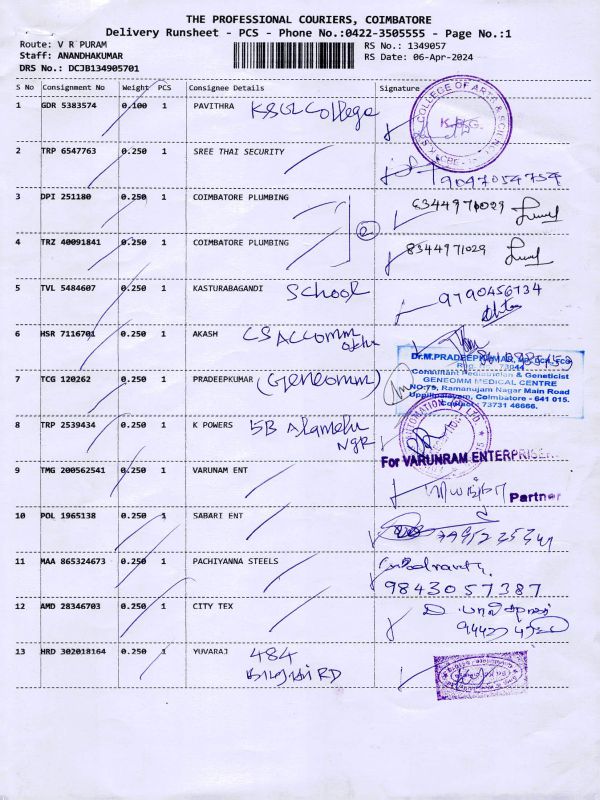 THE PROFESSIONAL COURIERS, COIMBATORE
Delivery Runsheet - PCS - Phone No.:0422-3505555 - Page No.:1
Route: V R PURAM RS No.: 1349057
Staff: ANANDHAKUMAR RS Date: 06-Apr-2024
DRS No.: DCJB134905701
S No Consignment No Weight PCS Consignee Details Signature
1 GDR 5383574 0.100 1 PAVITHRA KSGL College
COLLEGE OF ARTS & SCIENCE
2 TRP 6547763 0.250 1 SREE THAI SECURITY 9047054754
3 DPI 251180 0.250 1 COIMBATORE PLUMBING 6344971029
2
4 TRZ 40091841 0.250 1 COIMBATORE PLUMBING 8344971029
5 TVL 5484607 0.250 1 KASTURABAGANDI School 9790456734
6 HSR 7116701 0.250 1 AKASH CS ACComm
Dr.M.PRADEEPKUMAR
Consultant Pediatrician & Geneticist
GENEOMM MEDICAL CENTRE
NO:79, Ramanujam Nagar Main Road
Uppilipalayam, Coimbatore - 641 015.
Contact : 73731 46666.
7 TCG 120262 0.250 1 PRADEEPKUMAR (Geneomm)
8 TRP 2539434 0.250 1 K POWERS 5B Alamelu
NGR
For VARUNRAM ENTERPRISE
9 TMG 200562541 0.250 1 VARUNAM ENT
Partner
10 POL 1965138 0.250 1 SABARI ENT
11 MAA 865324673 0.250 1 PACHIYANNA STEELS
9843057387
12 AMD 28346703 0.250 1 CITY TEX
13 HRD 302018164 0.250 1 YUVARAJ 484
RD